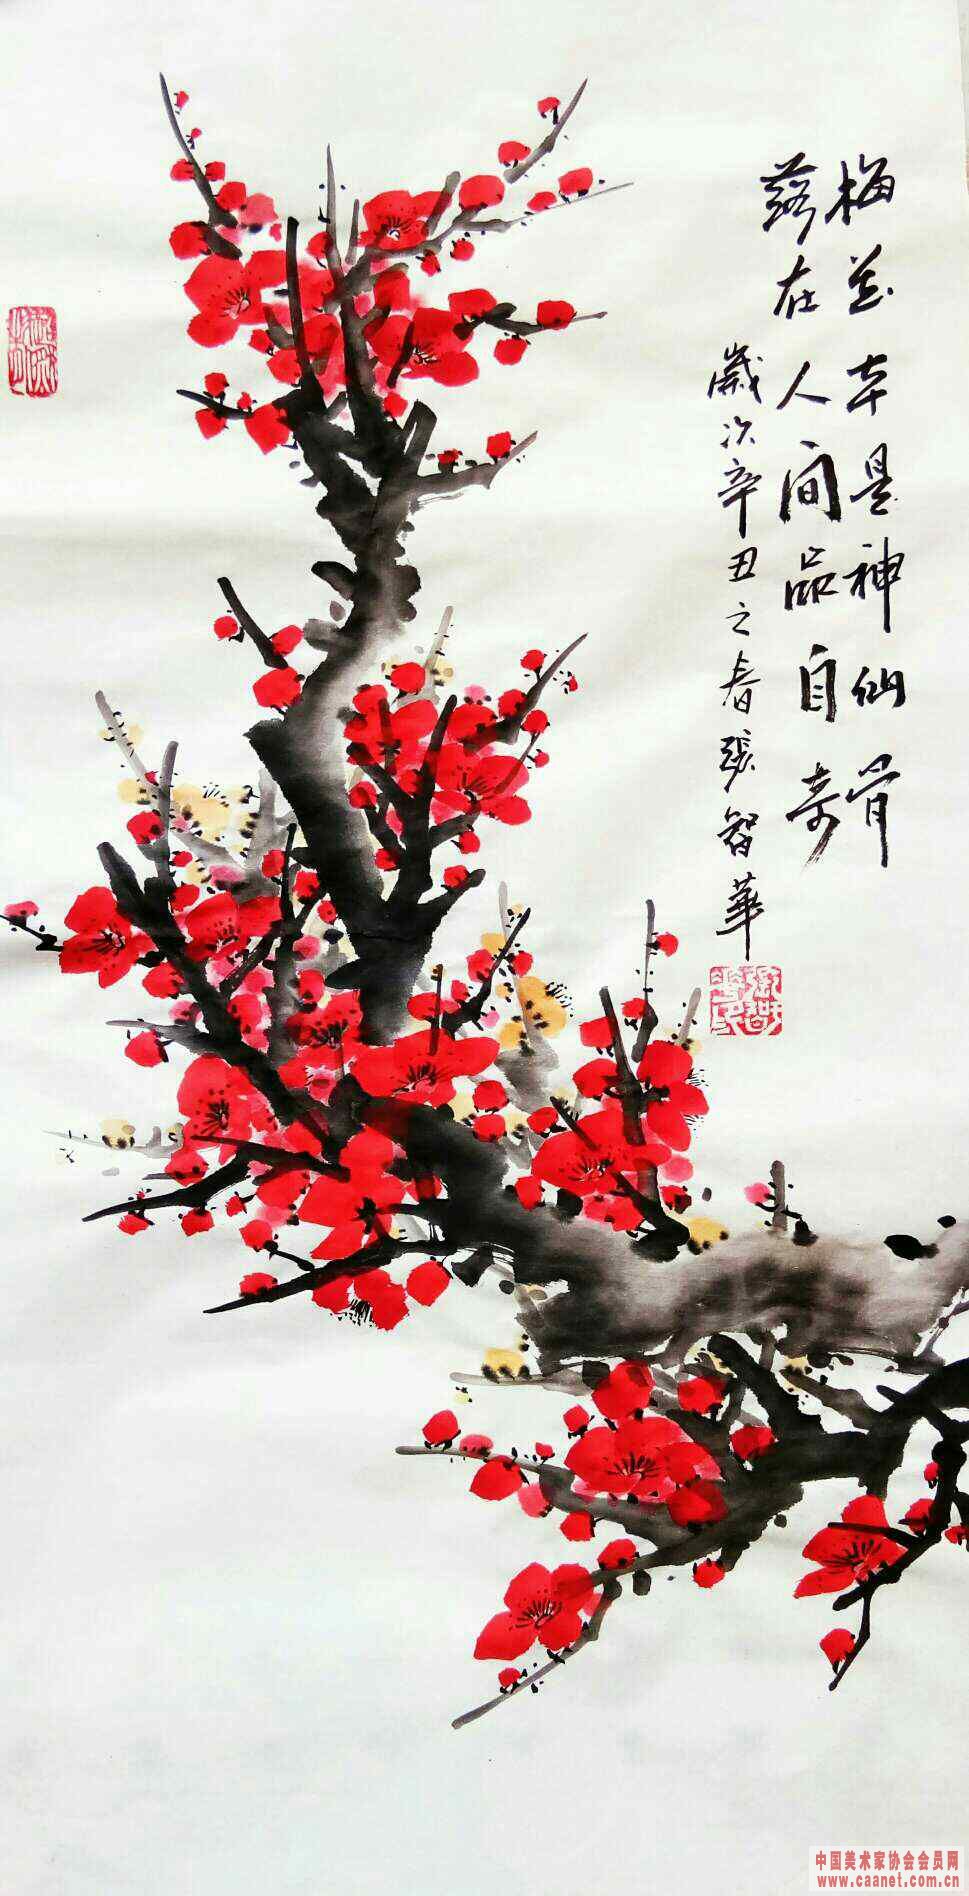 梅花本是神仙骨
落在人间品自奇
歲次辛丑之春張智華
中国美术家协会会员网
www.caanet.com.cn